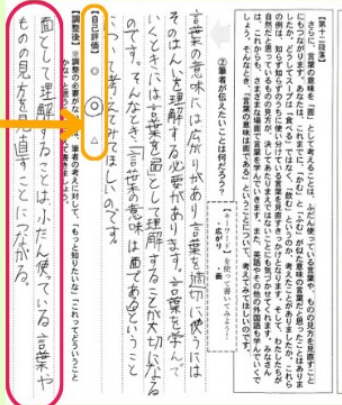 【第十二段落】
さらに、言葉の意味を「面」として考えることは、ふだん使っている言葉や、ものの見方を見直すことに
もつながります。あなたは、これまでに、「かむ」と「ふむ」が似た意味の言葉だと思ったことはありま
したか。どうしてスープは「食べる」ではなく、「飲む」というのか、考えたことがありましたか。これら
の例は、知らず知らずのうちに使い分けている言葉を見直すきっかけとなります。そして、わたしたちが
自然だと思っているものの見方が、決して当たりまえではないことにも気づかせてくれます。みなさん
は、これからも、さまざまな場面で言葉を学んでいきます。また、英語やその他の外国語も学んでいくで
しょう。そんなとき、「言葉の意味は面である」ということについて、考えてみてほしいのです。
②筆者が伝えたいことは何だろう?
【キーワード】を使って書いてみよう!
・広がり ・面
言葉の意味には広がりがあり言葉を適切に使うには
そのはんいを理解する必要があります。言葉を学んで
いくときには言葉を「面」として理解することが大切になる
のです。そんなとき、「言葉の意味は面である」ということ
について考えてみてほしいのです。
【自己評価】 ◎ ○ △
【調整後】
筆者の考えに対して、「もっと知りたいな」「これってどういうこと
かな」
面として理解することは、ふだん使っている言葉や
ものの見方を見直すことにつながる。